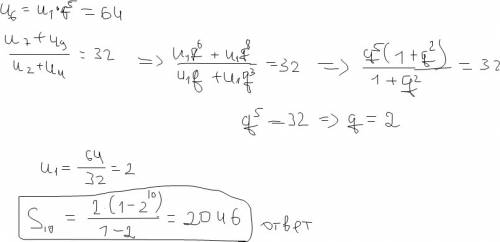 u₆ = u₁·q⁵ = 64
(u₇ + u₉)/(u₂ + u₄) = 32 => (u₁q⁶ + u₁q⁸)/(u₁q + u₁q³) = 32 => q⁵(1+q²)/(1+q²) = 32
q⁵ = 32 => q = 2
u₁ = 64/32 = 2
S₁₀ = 2(1-2¹⁰)/(1-2) = 2046 ответ